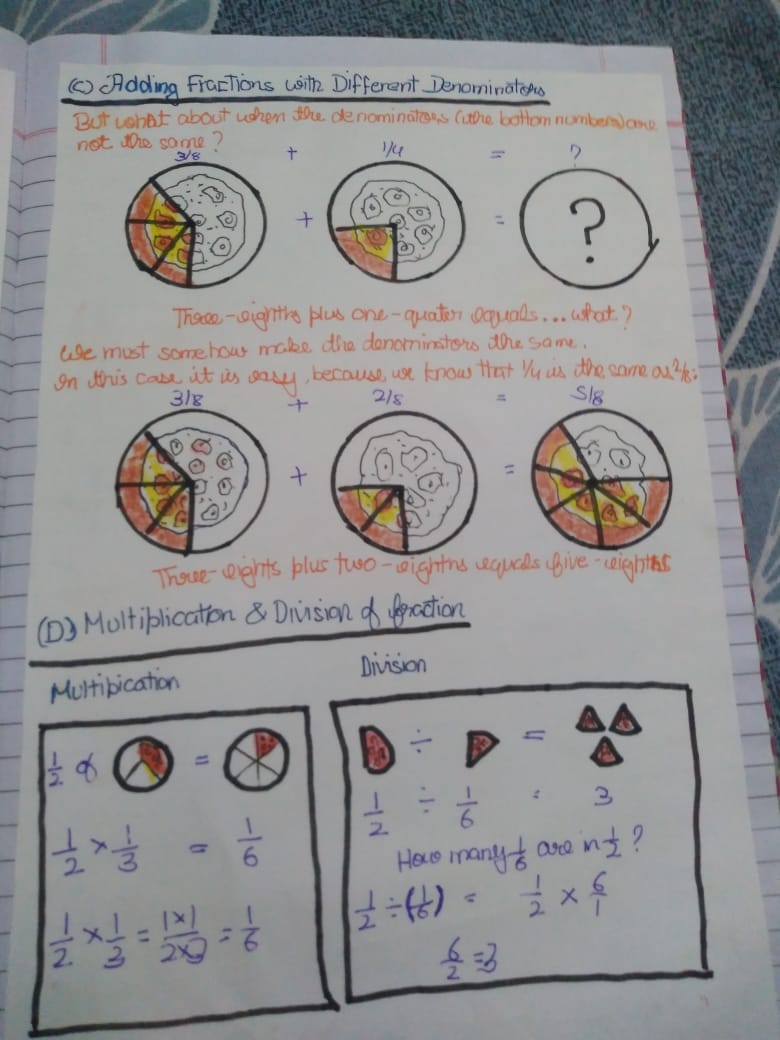 (C) Adding Fractions with Different Denominators
But what about when the denominators (the bottom numbers) are
not the same?
3/8 + 1/4 = ?
+ = ?
Three-eighths plus one-quater equals...what?
We must somehow make the denominators the same.
In this case it is easy, because we know that 1/4 is the same as 2/8:
3/8 + 2/8 = 5/8
+ =
Three-eights plus two-eighths equals five-eighths
(D) Multiplication & Division of fraction
Multipication
1/2 of =
1/2 × 1/3 = 1/6
1/2 × 1/3 = 1×1/2×3 = 1/6
Division
÷ =
1/2 ÷ 1/6 : 3
How many 1/6 are in 1/2?
1/2 ÷ (1/6) = 1/2 × 6/1
6/2 = 3